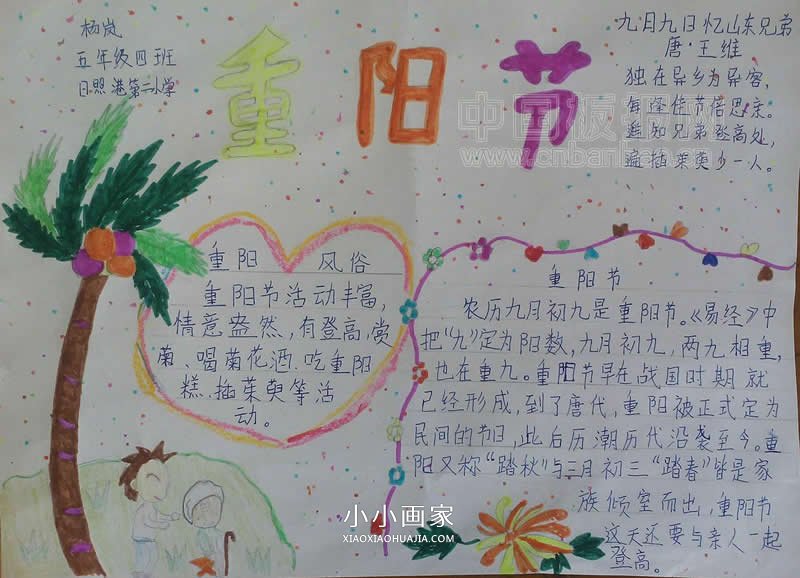 杨岚
五年级四班
日照港第二小学
重阳节
九月九日忆山东兄弟
唐·王维
独在异乡为异客,
每逢佳节倍思亲。
遥知兄弟登高处,
遍插茱萸少一人。
重阳 风俗
重阳节活动丰富,
情意盎然,有登高,赏
菊、喝菊花酒、吃重阳
糕、插茱萸等活
动。
重阳节
农历九月初九是重阳节。《易经》中
把“九”定为阳数,九月初九,两九相重,
也在重九。重阳节早在战国时期就
已经形成,到了唐代,重阳被正式定为
民间的节日,此后历潮历代沿袭至今。重
阳又称“踏秋”与三月初三“踏春”皆是家
族倾室而出,重阳节
这天还要与亲人一起
登高。
小小画家
XIAOXIAOHUAJIA.COM